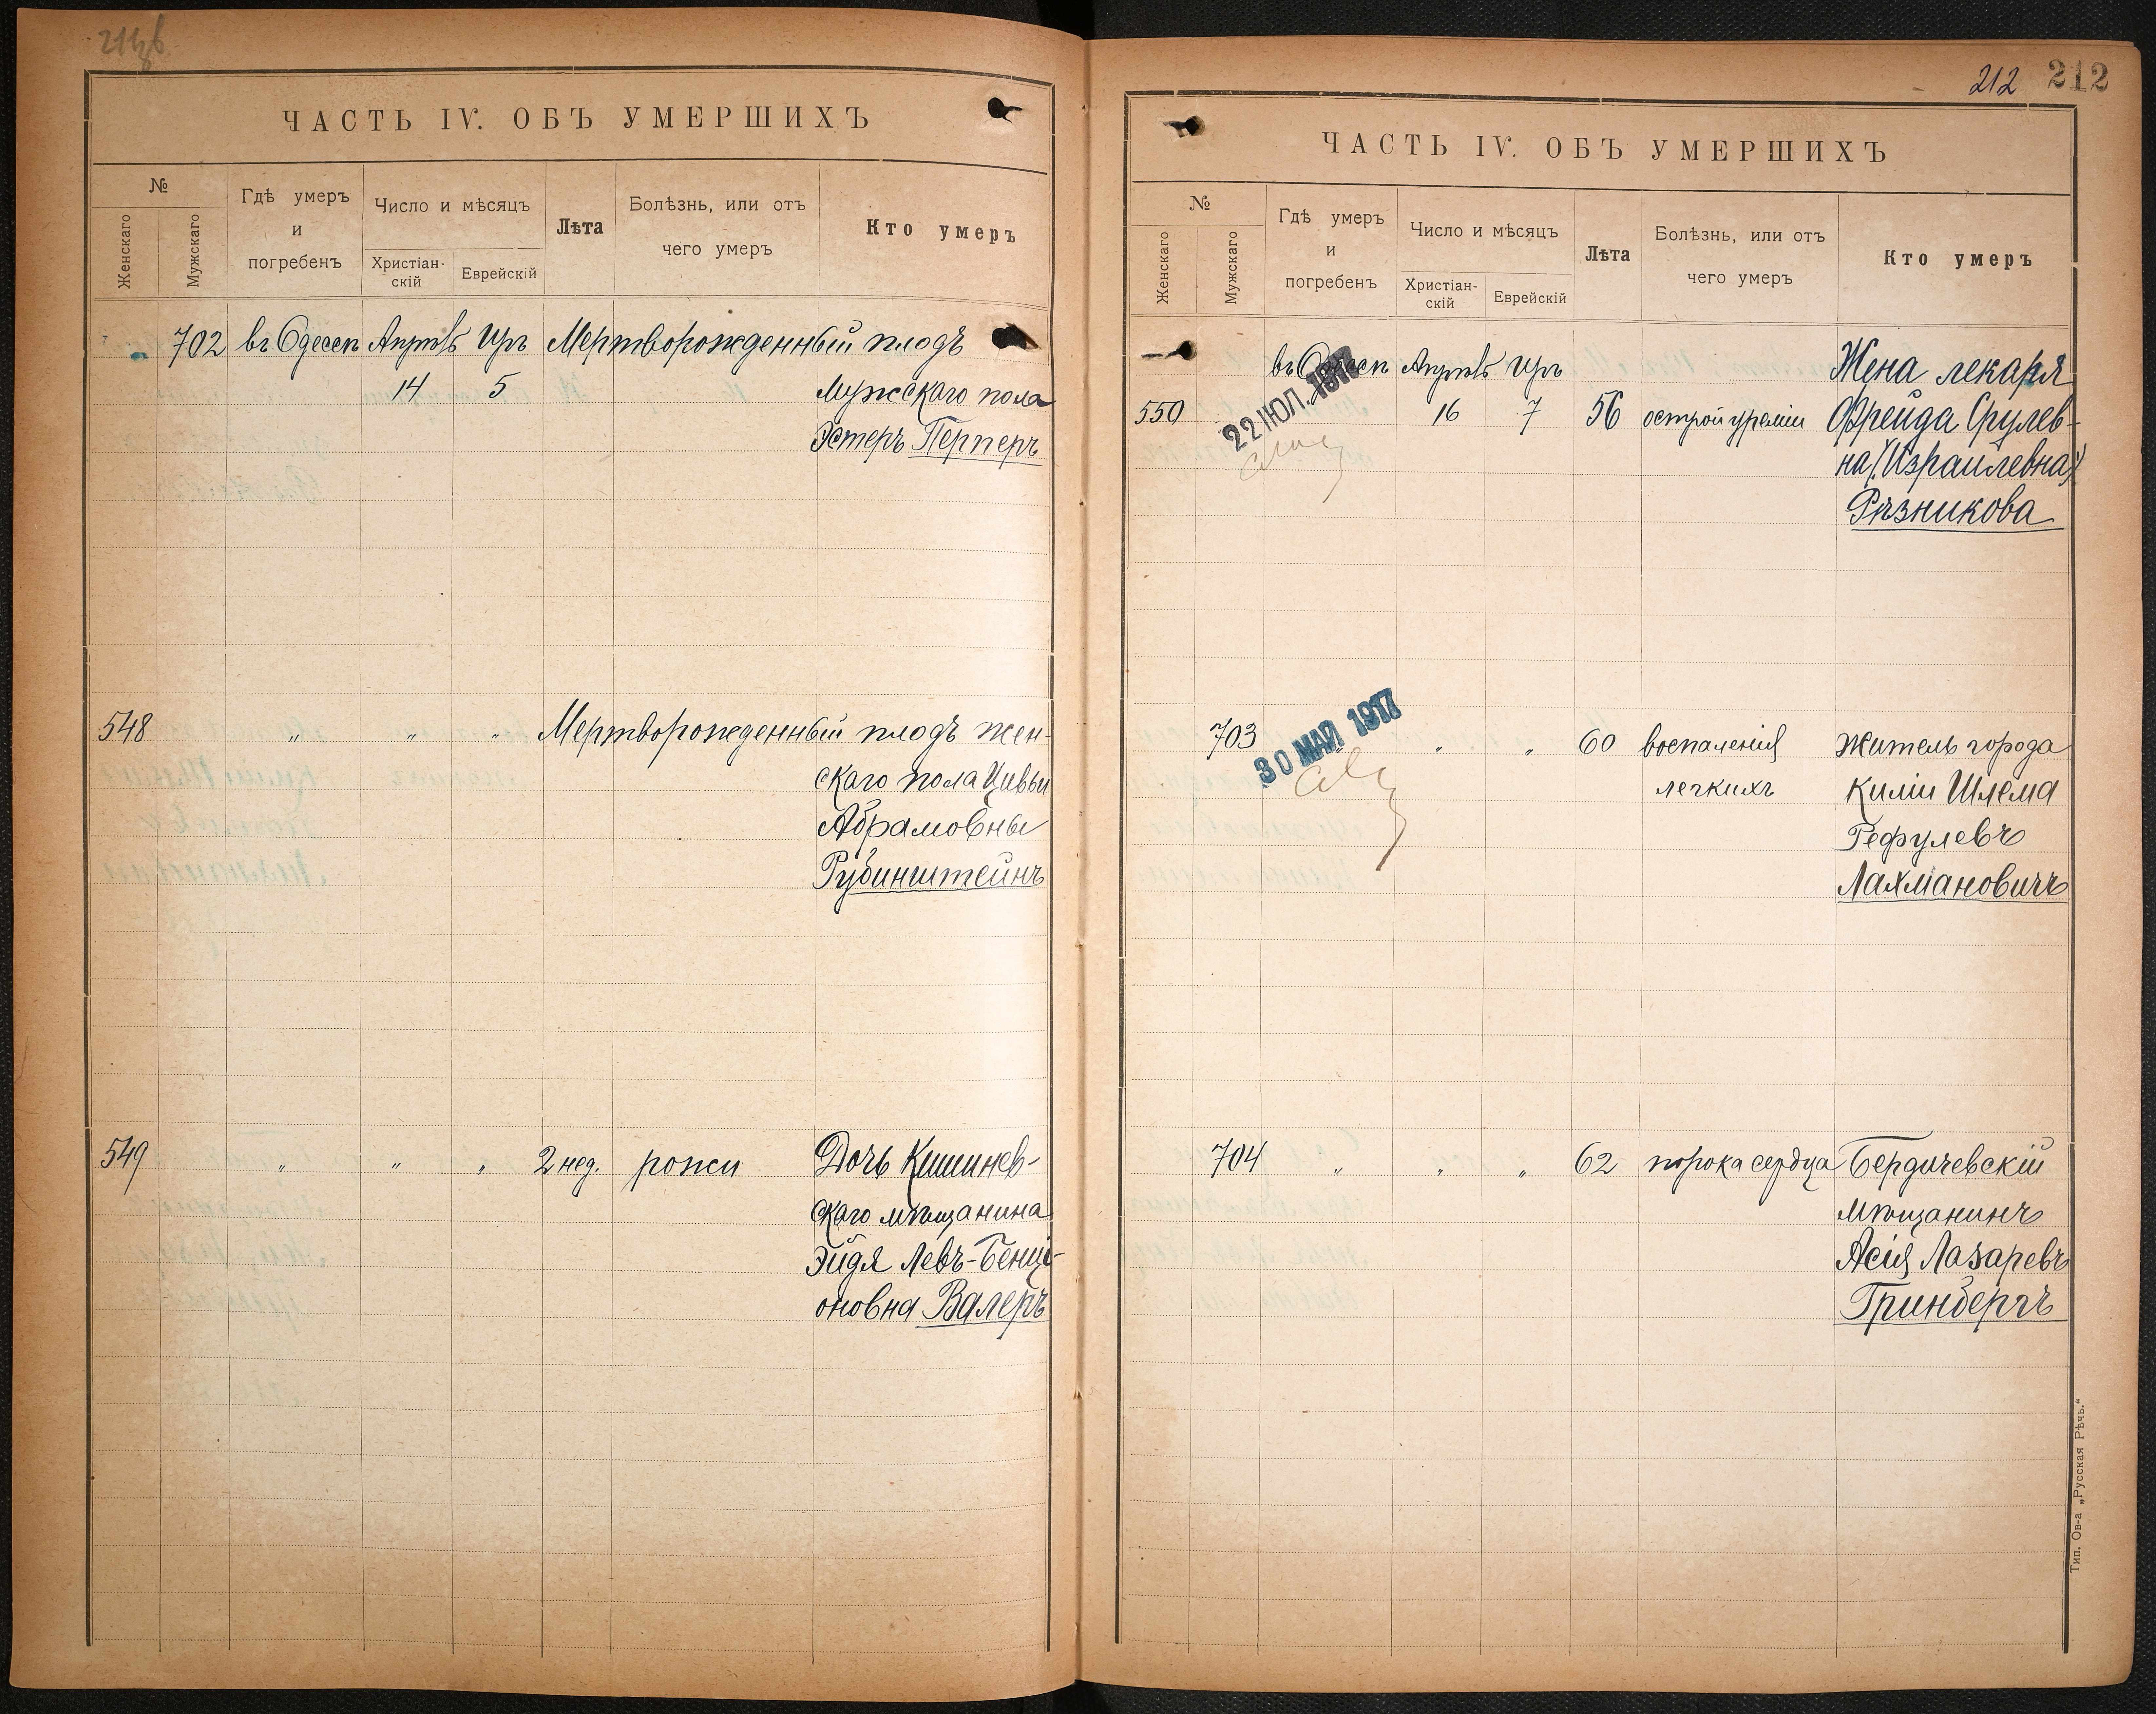 ЧАСТЬ IV. ОБЪ УМЕРШИХЪ
№
Женскаго
Мужскаго
Гдѣ умеръ
и
погребенъ
Число и мѣсяцъ
Христіан-
скій
Еврейскій
Лѣта
Болѣзнь, или отъ
чего умеръ
Кто умеръ
702 въ Одессѣ Апрѣль Иръ Мертворожденный плодъ
14 5 Мужскаго пола
Эстеръ Перперъ
548 " " " Мертворожденный плодъ жен-
скаго пола Цивьи
Абрамовны
Рубинштейнъ
549 " " " 2 нед. рожи Дочь Кишинев-
скаго мѣщанина
Эйдя Левъ-Бенці-
оновна Валеръ
212 212
ЧАСТЬ IV. ОБЪ УМЕРШИХЪ
№
Женскаго
Мужскаго
Гдѣ умеръ
и
погребенъ
Число и мѣсяцъ
Христіан-
скій
Еврейскій
Лѣта
Болѣзнь, или отъ
чего умеръ
Кто умеръ
въ Одессѣ Апрѣль Иръ Жена лекаря
550 16 7 56 острой уреміи Фрейда Срулев-
22 ІЮЛ. 1917
на (Израилевна)
Рѣзникова
30 МАЙ 1917
703 " " " 60 воспаленія Житель города
легкихъ Киліи Шлема
Гефулевъ
Лахмановичъ
704 " " " 62 порока сердца Бердичевскій
мѣщанинъ
Асія Лазаревъ
Гринбергъ
Тип. Ов-а „Русская Рѣчь."